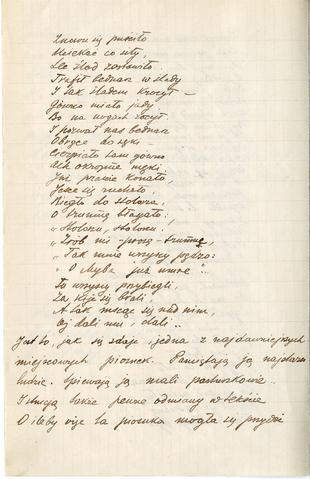 Znowu się puściło
Uciekać co siły,
Lec ślod zostawiło.
Trafił bednarz w ślady
I tak śladem kroczył –
Gówno miało jady
Bo na nogach zocył
I porwał nas bednarz
Obręce do ręki –
Cierpiało tam gówno
Ale okropne męki,
Już prawie konało,
Jesce się ruchało.
Biegło do stolorza,
O trumnę błagało:
„Stolorzu, stolorzu.
„Zrób mi – proszę – trumnę,
„Tak mnie wszyscy pędzą:
To wszyscy przybiegli.
Za kije się brali.
A tak mszcąc się nad nim,
Oj dali mu, dali..
Jest to, jak się zdaje, jedna z najdawniejszych
miejscowych piosnek. Pamiętają ją najstarsi
ludzie. Śpiewają ją mali pastuszkowie..
Istnieją takie pewne odmiany w tekście
O ileby więc ta piosnka mogła się przydać